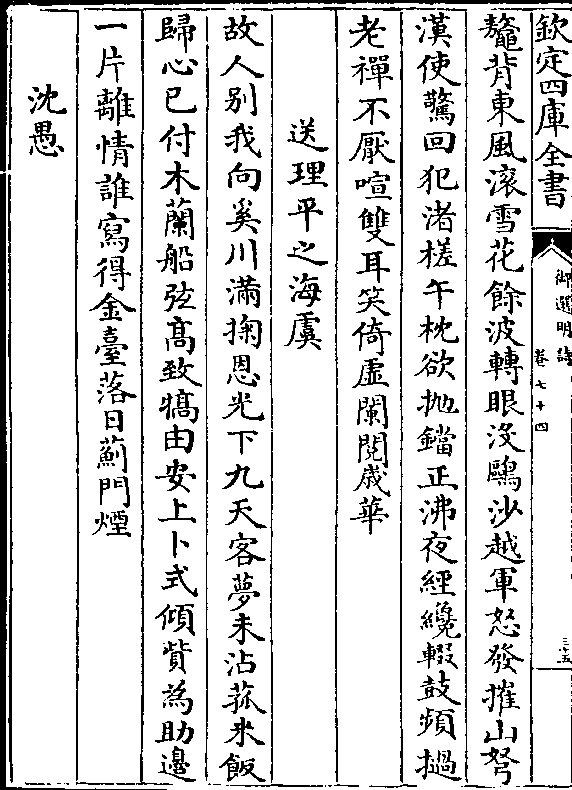 欽定四庫全書
御選明詩
卷七十四
三十五
鼇背東風滚雪花餘波轉眼沒鷗沙越軍怒發摧山弩
漢使驚回犯渚槎午枕欲拋鐺正沸夜經纔輟鼓頻撾
老禪不厭喧雙耳笑倚虛闌閱歲華
送理平之海虞
故人别我向奚川滿掬恩光下九天客夢未沾菰米飯
歸心已付木蘭船弦髙致犒由安上卜式傾貲為助邊
一片離情誰寫得金臺落日薊門煙
沈愚